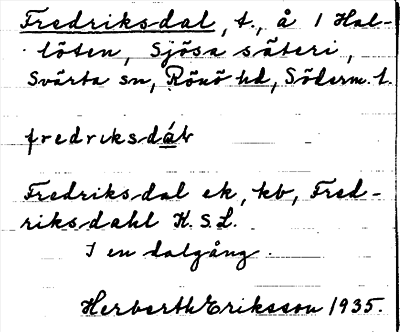 Fredriksdal, t., å 1 Hal-
löten, Sjösa säteri,
Svärta sn, Rönö hd, Söderm. l.
fredriksdáv
Fredriksdal ek, kb, Fred-
riksdahl K.S.L.
I en dalgång.
Herberth Eriksson 1935.